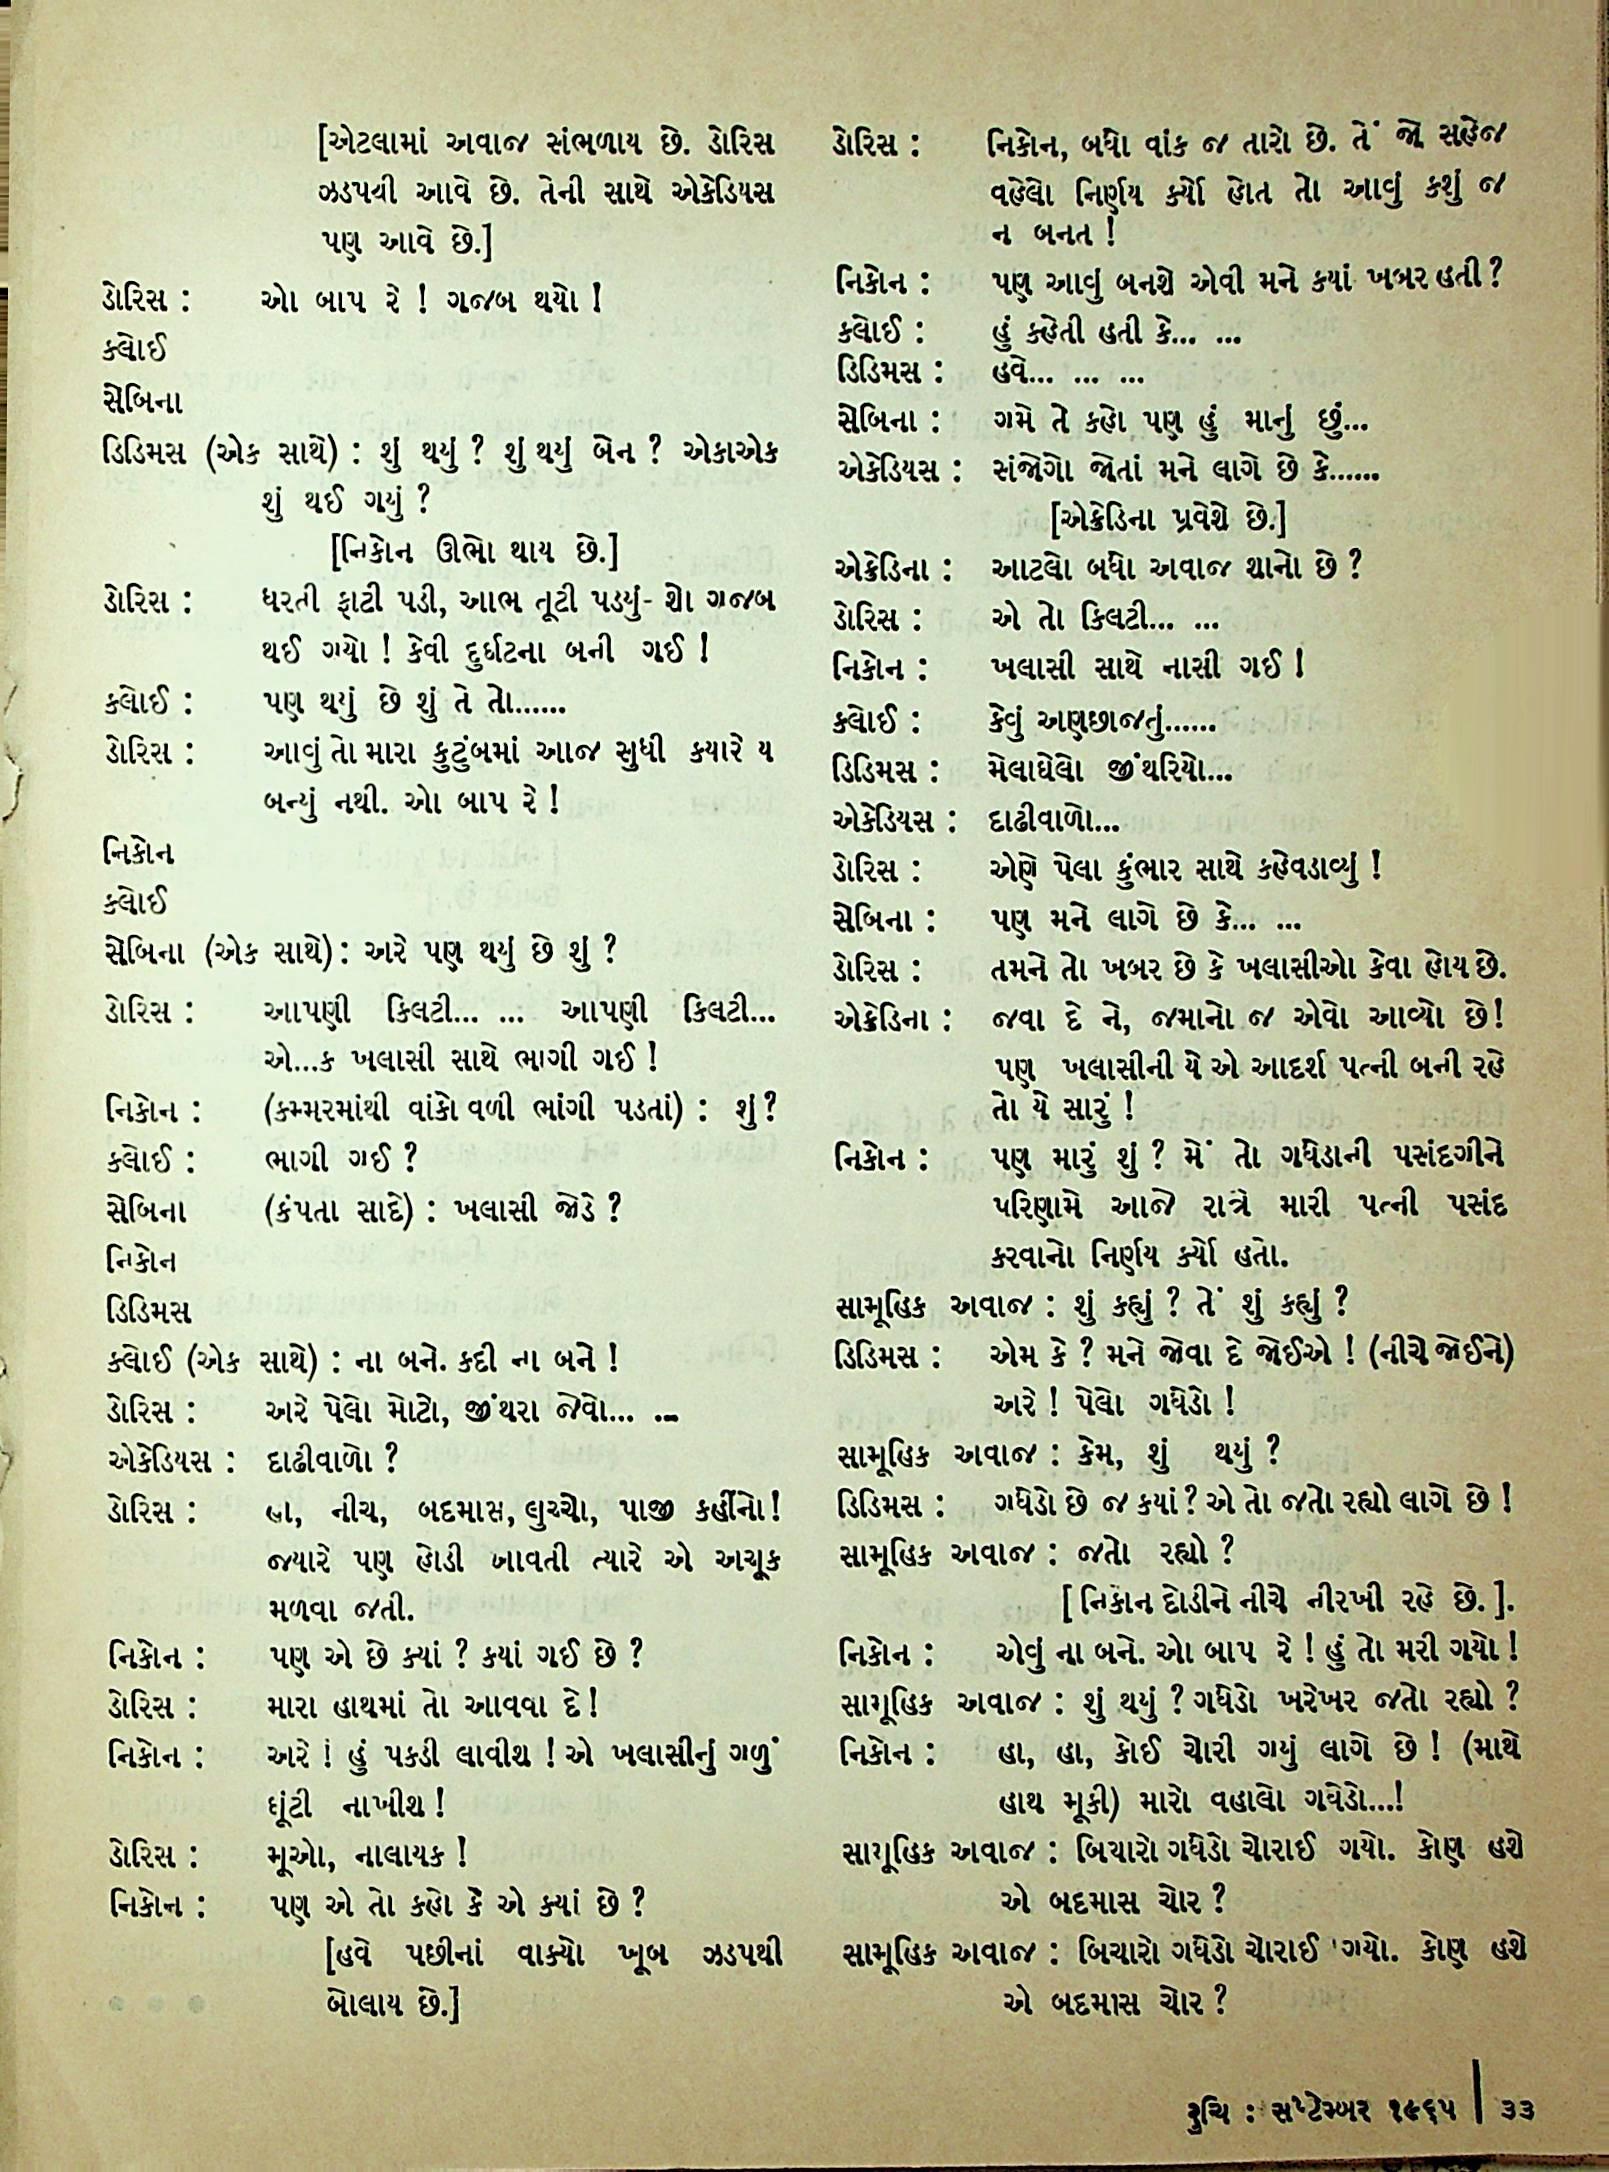 [એટલામાં અવાજ સંભળાય છે. ડોરિસ
ઝડપથી આવે છે. તેની સાથે એકેડિયસ
પણ આવે છે.]
ડોરિસ : ઓ બાપ રે ! ગજબ થયો !
ક્લોઈ
સૅબિના
ડિડિમસ (એક સાથે) : શું થયું ? શું થયું બેન ? એકાએક
શું થઈ ગયું ?
[નિકોન ઊભો થાય છે.]
ડોરિસ : ધરતી ફાટી પડી, આભ તૂટી પડયું- શો ગજબ
થઈ ગયો ! કેવી દુર્ઘટના બની ગઈ !
ક્લોઈ : પણ થયું છે શું તે તો......
ડોરિસ : આવું તો મારા કુટુંબમાં આજ સુધી કયારે ય
બન્યું નથી. ઓ બાપ રે !
નિકોન
ક્લોઈ
સૅબિના (એક સાથે) : અરે પણ થયું છે શું ?
ડોરિસ : આપણી કિલટી... ... આપણી કિલટી...
એ...ક ખલાસી સાથે ભાગી ગઈ !
નિકોન : (કમ્મરમાંથી વાંકો વળી ભાંગી પડતાં) : શું ?
ક્લોઈ : ભાગી ગઈ ?
સૅબિના (કંપતા સાદે) : ખલાસી જોડે ?
નિકોન
ડિડિમસ
ક્લોઈ (એક સાથે) : ના બને. કદી ના બને !
ડોરિસ : અરે પેલો મોટો, જીંથરા જેવો... ...
એકેડિયસ : દાઢીવાળો ?
ડોરિસ : હા, નીચ, બદમાસ, લુચ્ચો, પાજી કહીંનો !
જ્યારે પણ હોડી ખાવતી ત્યારે એ અચૂક
મળવા જતી.
નિકોન : પણ એ છે ક્યાં ? કયાં ગઈ છે ?
ડોરિસ : મારા હાથમાં તો આવવા દે !
નિકોન : અરે ! હું પકડી લાવીશ ! એ ખલાસીનું ગળું
ઘૂંટી નાખીશ !
ડોરિસ : મૂઓ, નાલાયક !
નિકોન : પણ એ તો કહો કે એ ક્યાં છે ?
[હવે પછીનાં વાક્યો ખૂબ ઝડપથી
બોલાય છે.]
ડોરિસ : નિકોન, બધો વાંક જ તારો છે. તેં જો સહેજ
વહેલો નિર્ણય કર્યો હોત તો આવું કશું જ
ન બનત !
નિકોન : પણ આવું બનશે એવી મને કયાં ખબર હતી ?
ક્લોઈ : હું કહેતી હતી કે... ...
ડિડિમસ : હવે... ... ...
સૅબિના : ગમે તે કહો પણ હું માનું છું...
એકેડિયસ : સંજોગો જોતાં મને લાગે છે કે......
[એક્રેડિના પ્રવેશે છે.]
એક્રેડિના : આટલો બધો અવાજ શાનો છે ?
ડોરિસ : એ તો કિલટી... ...
નિકોન : ખલાસી સાથે નાસી ગઈ !
ક્લોઈ : કેવું અણછાજતું......
ડિડિમસ : મેલાઘેલો જીંથરિયો...
એકેડિયસ : દાઢીવાળો...
ડોરિસ : એણે પેલા કુંભાર સાથે કહેવડાવ્યું !
સૅબિના : પણ મને લાગે છે કે... ...
ડોરિસ : તમને તો ખબર છે કે ખલાસીઓ કેવા હોય છે.
એક્રેડિના : જવા દે ને, જમાનો જ એવો આવ્યો છે !
પણ ખલાસીની યે એ આદર્શ પત્ની બની રહે
તો યે સારું !
નિકોન : પણ મારું શું ? મેં તો ગધેડાની પસંદગીને
પરિણામે આજે રાત્રે મારી પત્ની પસંદ
કરવાનો નિર્ણય કર્યો હતો.
સામૂહિક અવાજ : શું કહ્યું ? તેં શું કહ્યું ?
ડિડિમસ : એમ કે ? મને જોવા દે જોઈએ ! (નીચે જોઈને)
અરે ! પેલો ગધેડો !
સામૂહિક અવાજ : કેમ, શું થયું ?
ડિડિમસ : ગધેડો છે જ કયાં ? એ તો જતો રહ્યો લાગે છે !
સામૂહિક અવાજ : જતો રહ્યો ?
[નિકોન દોડીને નીચે નીરખી રહે છે. ].
નિકોન : એવું ના બને. ઓ બાપ રે ! હું તો મરી ગયો !
સામૂહિક અવાજ : શું થયું ? ગધેડો ખરેખર જતો રહ્યો ?
નિકોન : હા, હા, કોઈ ચોરી ગયું લાગે છે ! (માથે
હાથ મૂકી) મારો વહાલો ગધેડો...!
સામૂહિક અવાજ : બિચારો ગધેડો ચોરાઈ ગયો. કોણ હશે
એ બદમાસ ચોર ?
સામૂહિક અવાજ : બિચારો ગધેડો ચોરાઈ ગયો. કોણ હશે
એ બદમાસ ચોર ?
રુચિ : સપ્ટેમ્બર ૧૯૬૫ | ૩૩